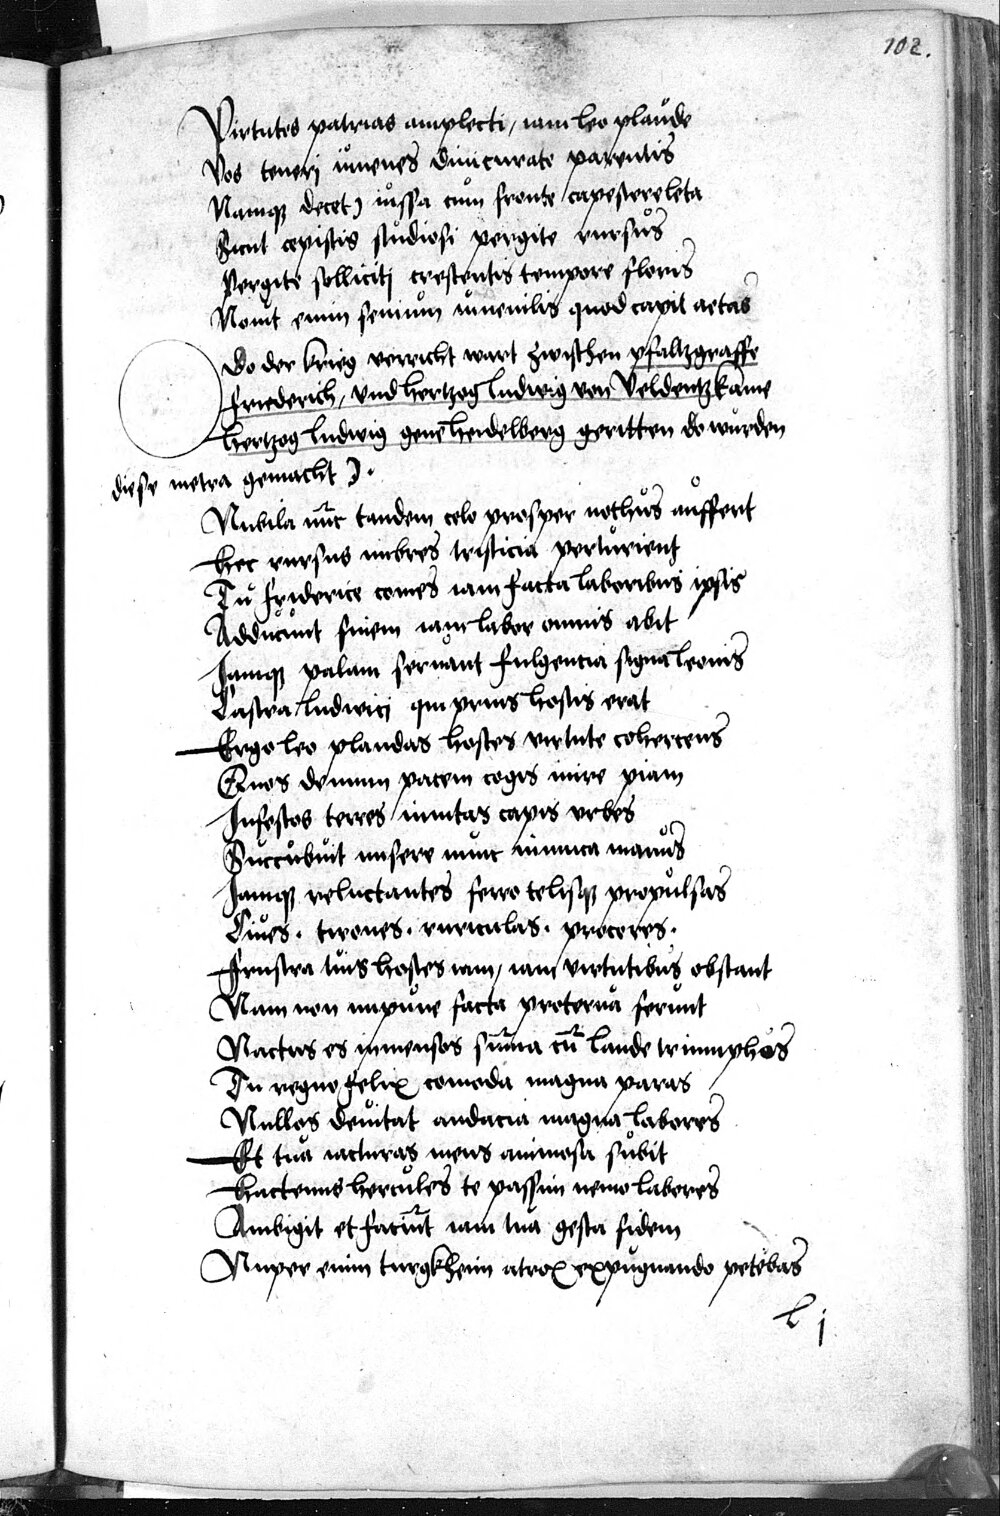 102.
Virtutes patrias amplecti, iam leo plaude
Vos teneri iuuenes diui curate parentis
Namque decet) iussa cum fronte capessere leta
Sicut cepistis studiosi pergite rursus
Pergite solliciti crescentis tempore floris
Nouit enim senium iuuenilis quod capit aetas
Do der krieg verricht wart zwischen pfaltzgraffe
friederich, vnd hertzog ludwig von Veldentz kame
hertzog ludwig gene heidelberg geritten do wurden
diese metra gemacht).
Nubila nunc tandem celo prosper nothus auffert
hec rursus imbres tristicia perturient
Tu friderice comes iam facta laboribus ipsis
Adducunt finem iam labor omnis abit
Jamque palam seruant fulgentia signa leonis
Castra ludwici qui prius hostis erat
Ergo leo plaudas hostes virtute cohercens
Quos demum pacem cogis inire piam
Infestos terres inuitas capis vrbes
Succubuit misere nunc inimica manus
Jamque reluctantes ferro telisque propulsas
Ciues. tirones. ruriculas. proceres.
frustra tuis hostes iam, iam virtutibus obstant
Nam non impune facta proterua ferunt
Nactus es inmensos summa cum laude triumphos
Tu regno felix comoda magna paras
Nullos deuitat audacia magna labores
Et tua iacturas mens animosa subit
hactenus hercules te passim nemo labores
Ambigit et faciunt iam tua gesta fidem
Nuper enim turgkheim atrox expugnando petebas
l j